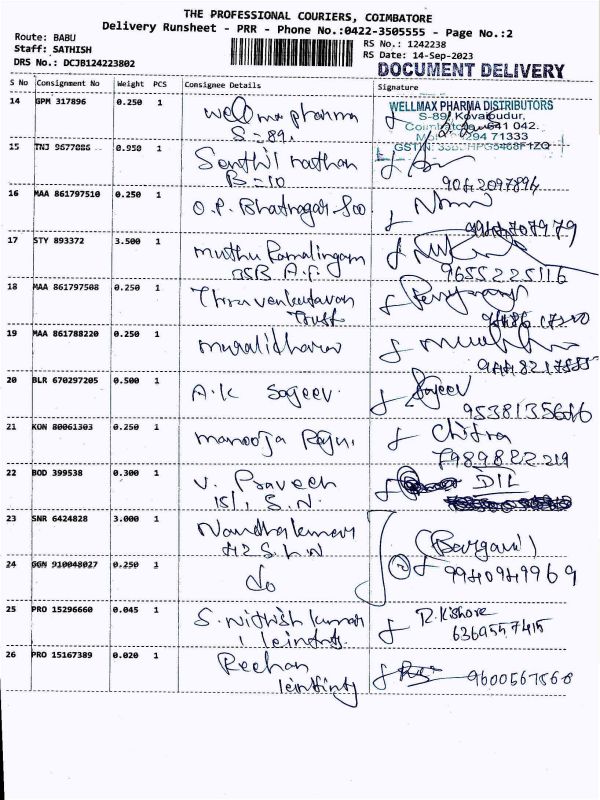 THE PROFESSIONAL COURIERS, COIMBATORE
Delivery Runsheet - PRR - Phone No.:0422-3505555 - Page No.:2
Route: BABU
Staff: SATHISH
DRS No.: DCJB124223802
RS No.: 1242238
RS Date: 14-Sep-2023
DOCUMENT DELIVERY
S No Consignment No Weight PCS Consignee Details Signature
14 GPM 317896 0.250 1 Wellmax pharma
S=89,
WELLMAX PHARMA DISTRIBUTORS
S-89, Kovaipudur,
Coimbatore 641 042.
94 71333
15 TNJ 9677086 0.950 1 Senthil nathan
B=10
9042097894
16 MAA 861797510 0.250 1 O.P. Bhatnagar
17 STY 893372 3.500 1 Muthu Ramalingam
9655225116
18 MAA 861797508 0.250 1 Thiruvenkatavan
Trust
19 MAA 861788220 0.250 1 Muralidharan
20 BLR 670297205 0.500 1 A.K Sajeev. Sajeev
21 KON 80061303 0.250 1 Manooja Raju, Chitra
7989822219
22 BOD 399538 0.300 1 V. Praveen DIL
151, S.N.
23 SNR 6424828 3.000 1 Nandhakumar
42 S.L.N
24 GGN 910048027 0.250 1 Do
9940949969
25 PRO 15296660 0.045 1 S. Nithish kumar R. Kishore
6369557415
26 PRO 15167389 0.020 1 Reehan
9600567568